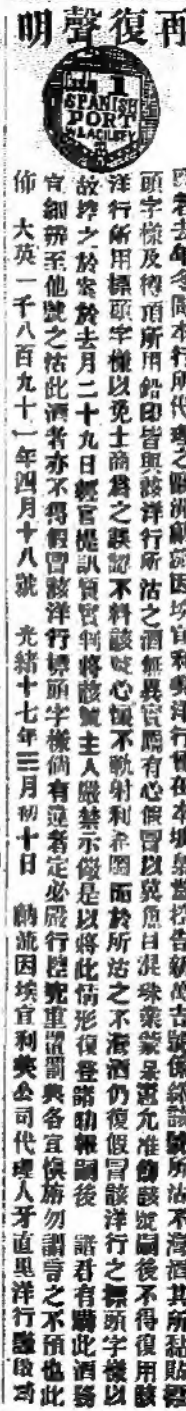 再復聲明
1
SPANISH
PORT
啟者去年冬間本行所代理之賬洲餉流因埃宜利夾洋行曾在本埠臬署控告新萬吉號係緣該號所沽不灣酒其所黏貼標
頭字樣及樽頂所用鉛印皆與該洋行所沽之酒無異實屬有心假冒以冀魚目混珠業蒙臬憲允准飭該號嗣後不得復用該
洋行所用標頭字樣以免士商為之誤認不料該號心懷不軌射利希圖而於所沽之不灣酒仍復假冒該洋行之標頭字樣以
故控之於案於去月二十九日經官提訊質實判將該號主人嚴禁示儆是以將此情形復登諸日報嗣後 諸君有購此酒務
宜細辨至他號之沽此酒者亦不得假冒該洋行標頭字樣倘有違者定必嚴行控究重謂罰典各宜慎旃勿謂言之不預也此
佈 大英一千八百九十一年四月十八號 光緒十七年三月初十日 餉流因埃宜利夾公司代理人牙直里洋行謹啟